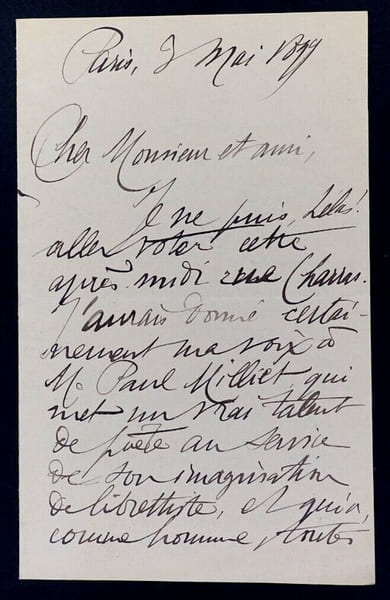 Paris, 3 Mai 1899
Cher Monsieur et ami,
Je ne puis, hélas!
aller voter cette
après-midi rue Charras.
J'aurais donné certai-
nement ma voix à
M. Paul Milliet, qui
met un vrai talent
de poëte au service
de son imagination
de librettiste, et qui a,
comme homme, toutes